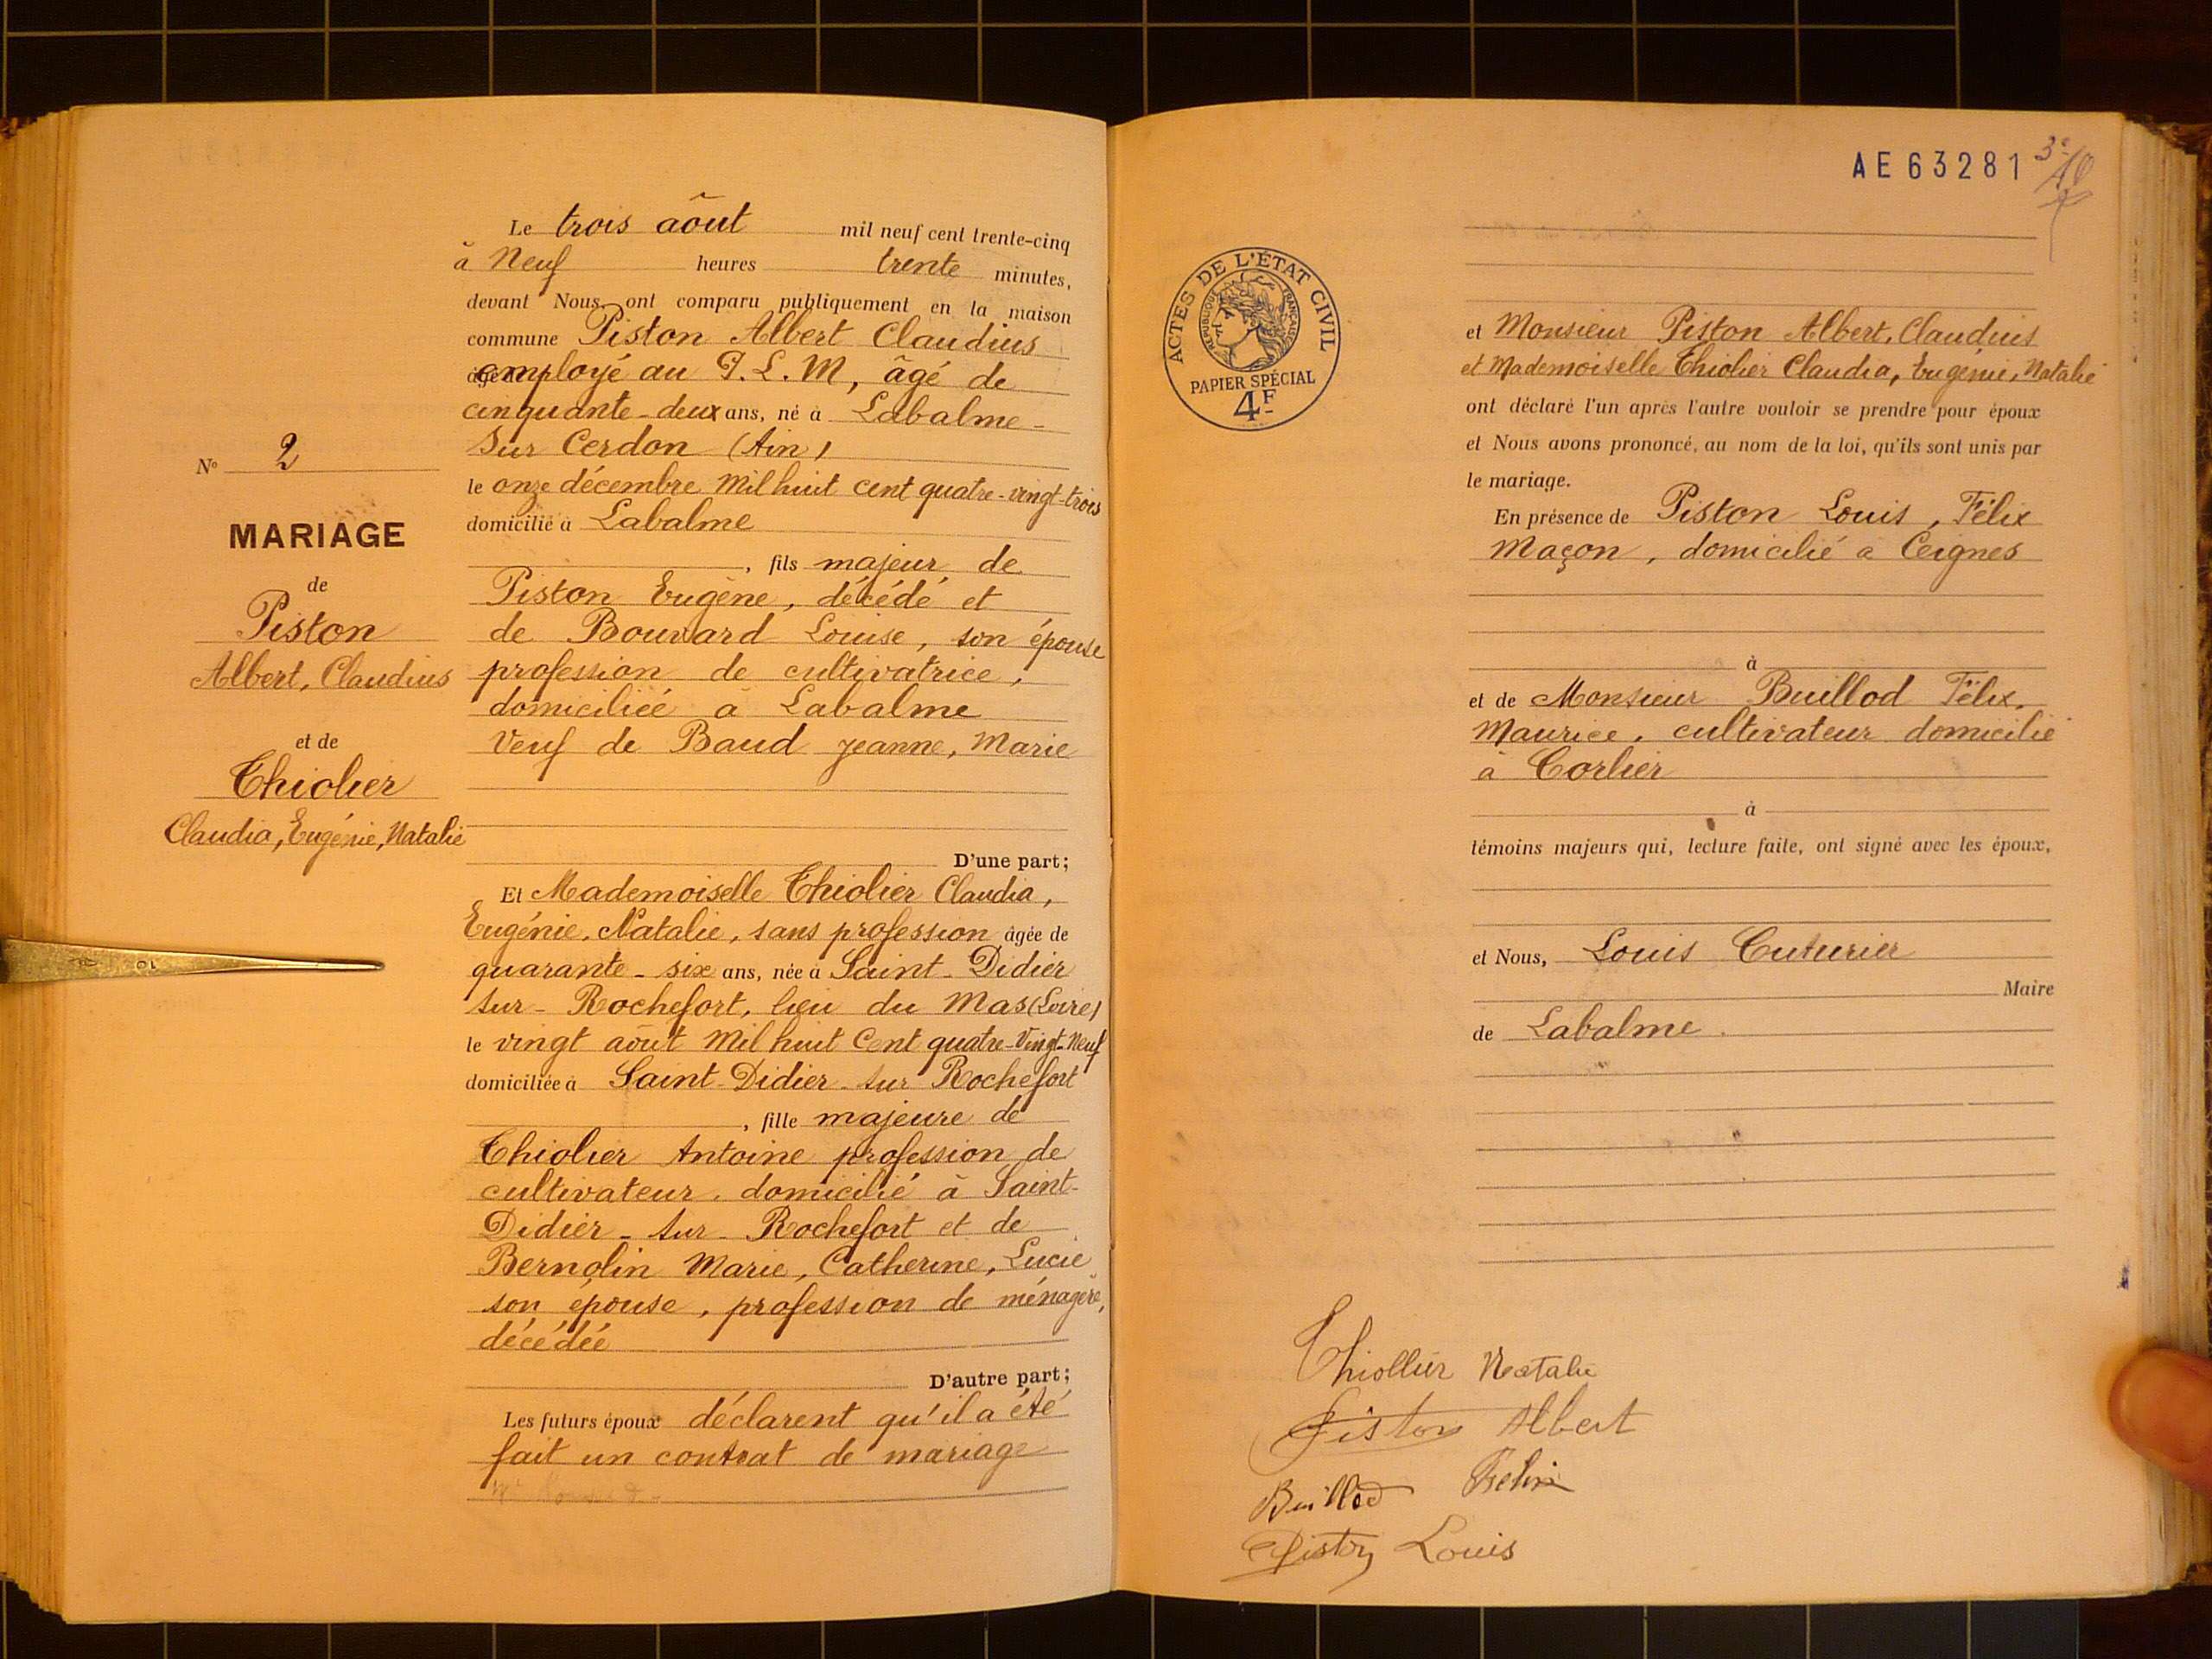 N° 2
MARIAGE
de
Piston
Albert, Claudius
et de
Thiolier
Claudia, Eugénie, Natalie
Le trois août mil neuf cent trente-cinq
à Neuf heures trente minutes,
devant Nous ont comparu publiquement en la maison
commune Piston Albert Claudius
employé au P.L.M, âgé de
cinquante-deux ans, né à Labalme-
sur Cerdon (Ain)
le onze décembre mil huit cent quatre-vingt-trois
domicilié à Labalme
, fils majeur de
Piston Eugène, décédé et
de Bouvard Louise, son épouse
profession de cultivatrice,
domiciliée à Labalme
Veuf de Baud Jeanne, Marie
D'une part;
Et Mademoiselle Thiolier Claudia,
Eugénie, Natalie, sans profession âgée de
quarante-six ans, née à Saint-Didier
sur-Rochefort, lieu du Mas (Loire)
le vingt août mil huit Cent quatre-Vingt-Neuf
domiciliée à Saint-Didier-sur Rochefort
, fille majeure de
Thiolier Antoine profession de
cultivateur, domicilié à Saint-
Didier-sur-Rochefort et de
Bernolin Marie, Catherine, Lucie
son épouse, profession de ménagère,
décédée
D'autre part;
Les futurs époux déclarent qu'il a été
fait un contrat de mariage
AE63281
ACTES DE L'ÉTAT CIVIL
RÉPUBLIQUE FRANÇAISE
PAPIER SPÉCIAL
4F
et Monsieur Piston Albert, Claudius
et Mademoiselle Thiolier Claudia, Eugénie, Natalie
ont déclaré l'un après l'autre vouloir se prendre pour époux
et Nous avons prononcé, au nom de la loi, qu'ils sont unis par
le mariage.
En présence de Piston Louis, Félix
Maçon, domicilié à Ceignes
à
et de Monsieur Buillod Félix,
Maurice, cultivateur domicilié
à Corlier
à
témoins majeurs qui, lecture faite, ont signé avec les époux,
et Nous, Louis Cuturier
Maire
de Labalme.
Thiollier Natalie
Piston Albert
Buillod Felix
Piston Louis